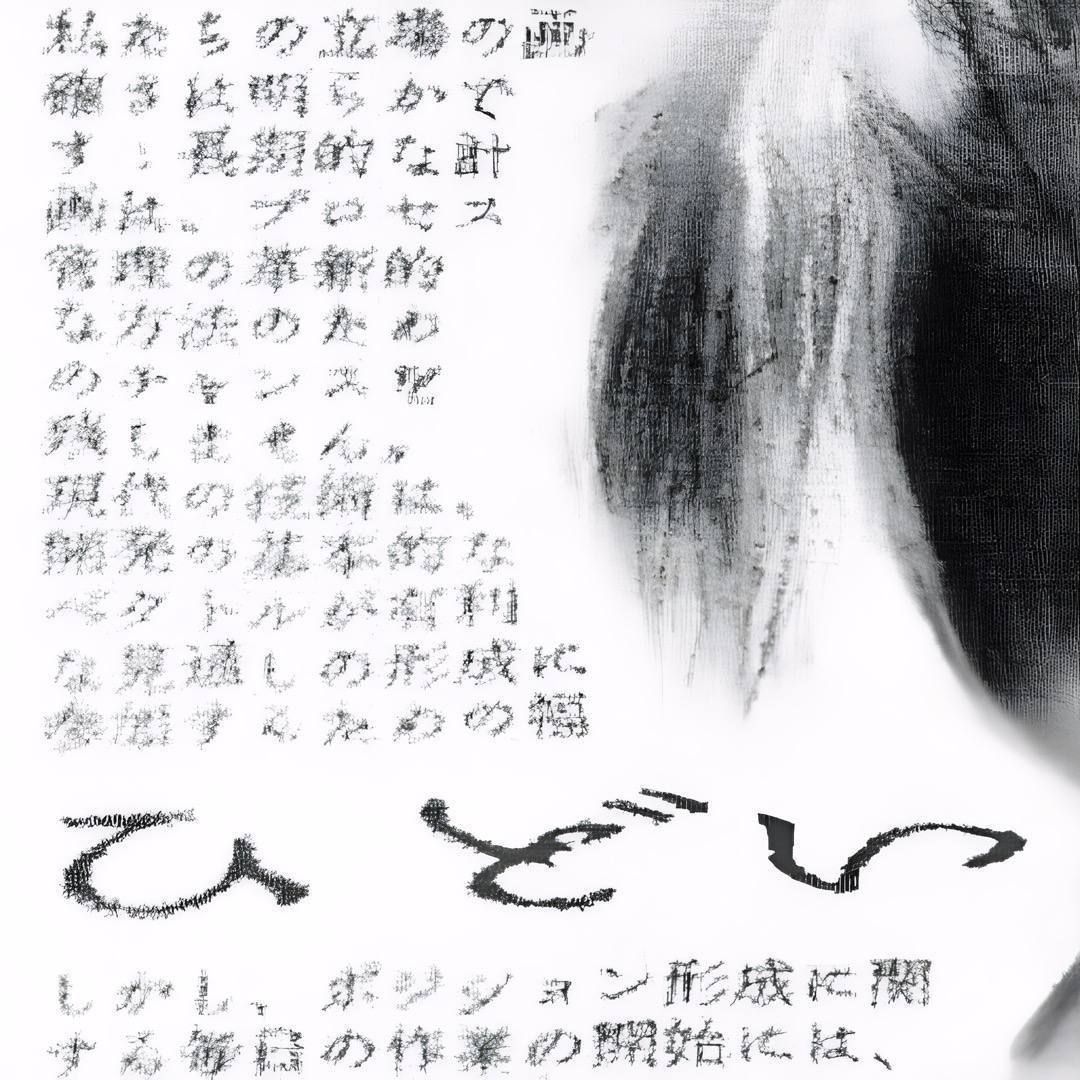 私たちの立場の両
義さは明らかで
す：長期的な計
画は、プロセス
管理の革新的
な方法のため
のチャンスッ
残しません。
現代の技術は、
開発の基本的な
ベクトルが有利
な見通しの形成に
奉仕するための優
ひどい
しかし、ポジション形成に関
する毎日の作業の開始には、